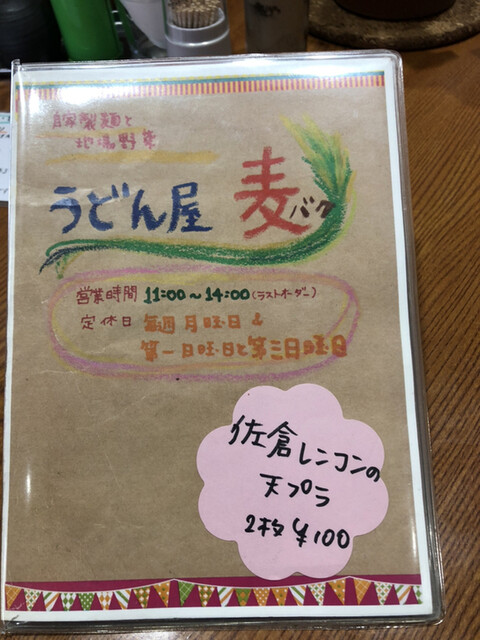 自家製麺と
地場野菜
うどん屋 麦バク
営業時間 11:00～14:00(ラストオーダー)
定休日 毎週月曜日&
第一日曜日と第三日曜日
佐倉レンコンの
天プラ
2枚¥100